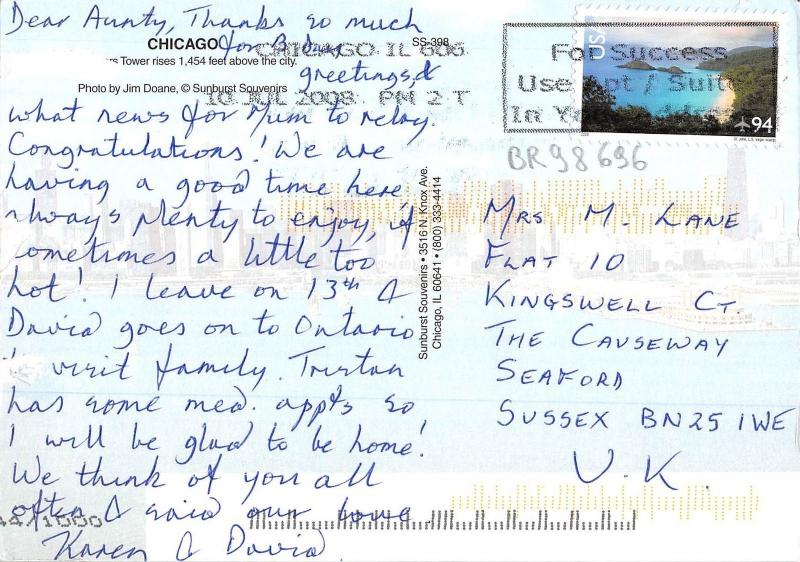 Dear Aunty, Thanks so much
for B.day
greetings, &
what news for Mum to relay.
Congratulations! We are
having a good time here
always plenty to enjoy, if
sometimes a little too
hot! I leave on 13th &
David goes on to Ontario
to visit family. Tristan
has some med. appts so
I will be glad to be home!
We think of you all
often & said our love
Karen & David
CHICAGO
SS-398
rs Tower rises 1,454 feet above the city.
Photo by Jim Doane, © Sunburst Souvenirs
CHICAGO IL 606
10 JUL 2008 PM 2 T
For Success
Use Apt / Suite
In Your Address
USA
94
BR98696
Sunburst Souvenirs • 3516 N. Knox Ave.
Chicago, IL 60641 • (800) 333-4414
MRS M. LANE
FLAT 10
KINGSWELL CT.
THE CAUSEWAY
SEAFORD
SUSSEX BN25 1WE
U.K.
44/1000